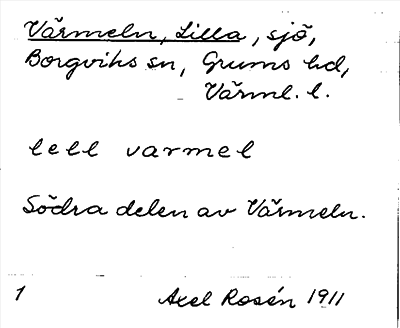 Värmeln, Lilla, sjö,
Borgviks sn, Grums hd,
Värml. l.
lell varmel
Södra delen av Värmeln.
1 Axel Rosén 1911